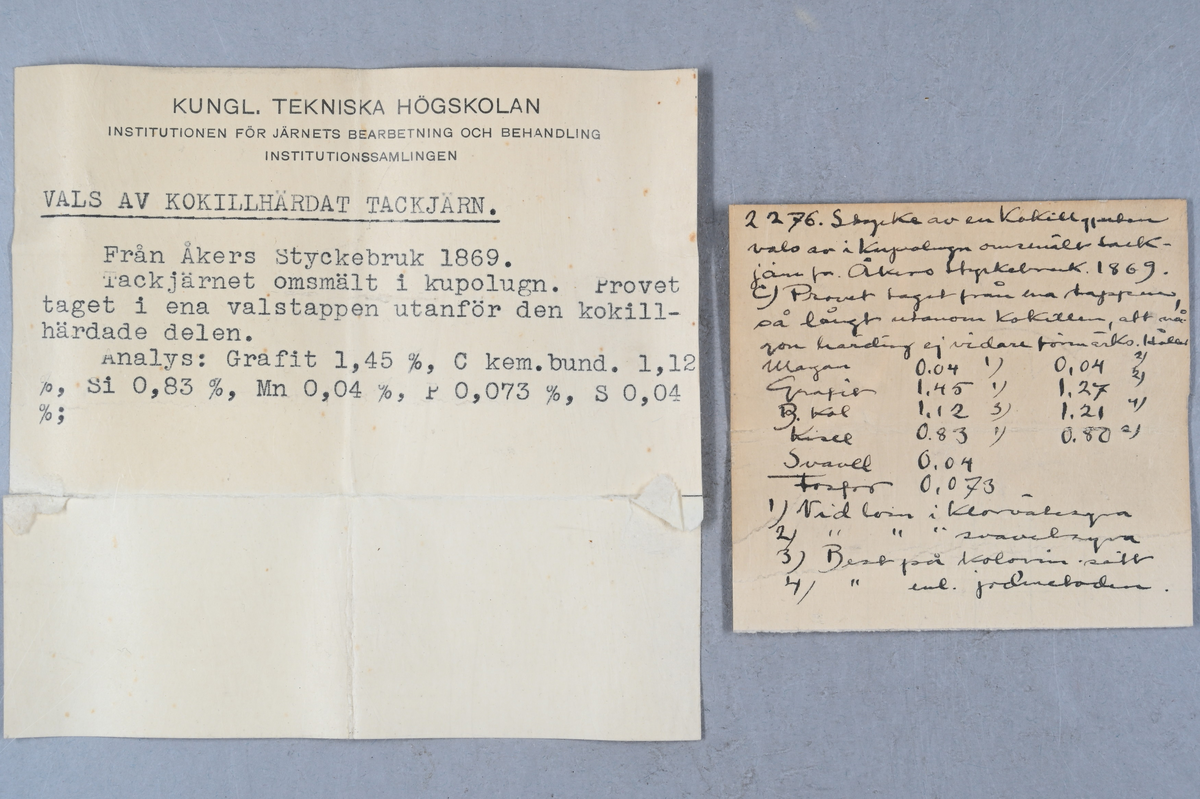 KUNGL. TEKNISKA HÖGSKOLAN
INSTITUTIONEN FÖR JÄRNETS BEARBETNING OCH BEHANDLING
INSTITUTIONSSAMLINGEN
VALS AV KOKILLHÄRDAT TACKJÄRN.
Från Åkers Styckebruk 1869.
Tackjärnet omsmält i kupolugn. Provet
taget i ena valstappen utanför den kokill-
härdade delen.
Analys: Grafit 1,45 %, C kem.bund. 1,12
%, Si 0,83 %, Mn 0,04 %, P 0,073 %, S 0,04
%;
2276. Stycke av en Kokillgjuten
vals av i Kupolugn omsmält tack-
järn fr. Åkers Styckebruk. 1869.
C) Provet taget från ena tappen,
så långt utanom Kokillen, att nå-
gon härdning ej vidare förmärks. Håller
Mangan 0.04 1) 0,04 2)
Grafit 1.45 1) 1.27 2)
B. Kol 1,12 3) 1.21 4)
Kisel 0.83 1) 0.80 2)
Svavel 0.04
Fosfor 0,073
1) Vid lösn i Klorvätesyra
2) " " " svavelsyra
3) Best på Kolorim. sätt
4) " enl. jodmetoden.